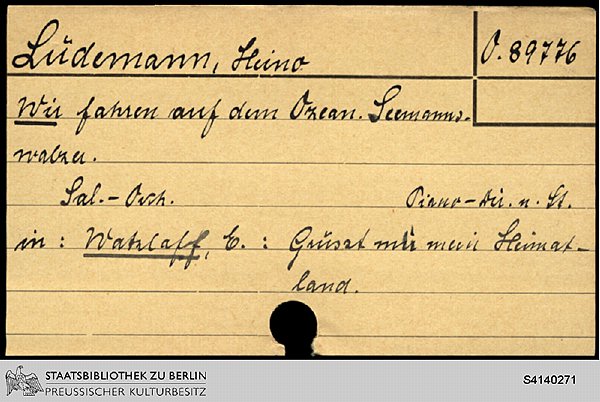 Lüdemann, Heino
O. 89776
Wir fahren auf dem Ozean. Seemanns-
walzer.
Sal.-Orch.
Piano-Dir. u. St.
in : Watzlaff, E. : Grüsst mir mein Heimat-
land.
STAATSBIBLIOTHEK ZU BERLIN
PREUSSISCHER KULTURBESITZ
S4140271